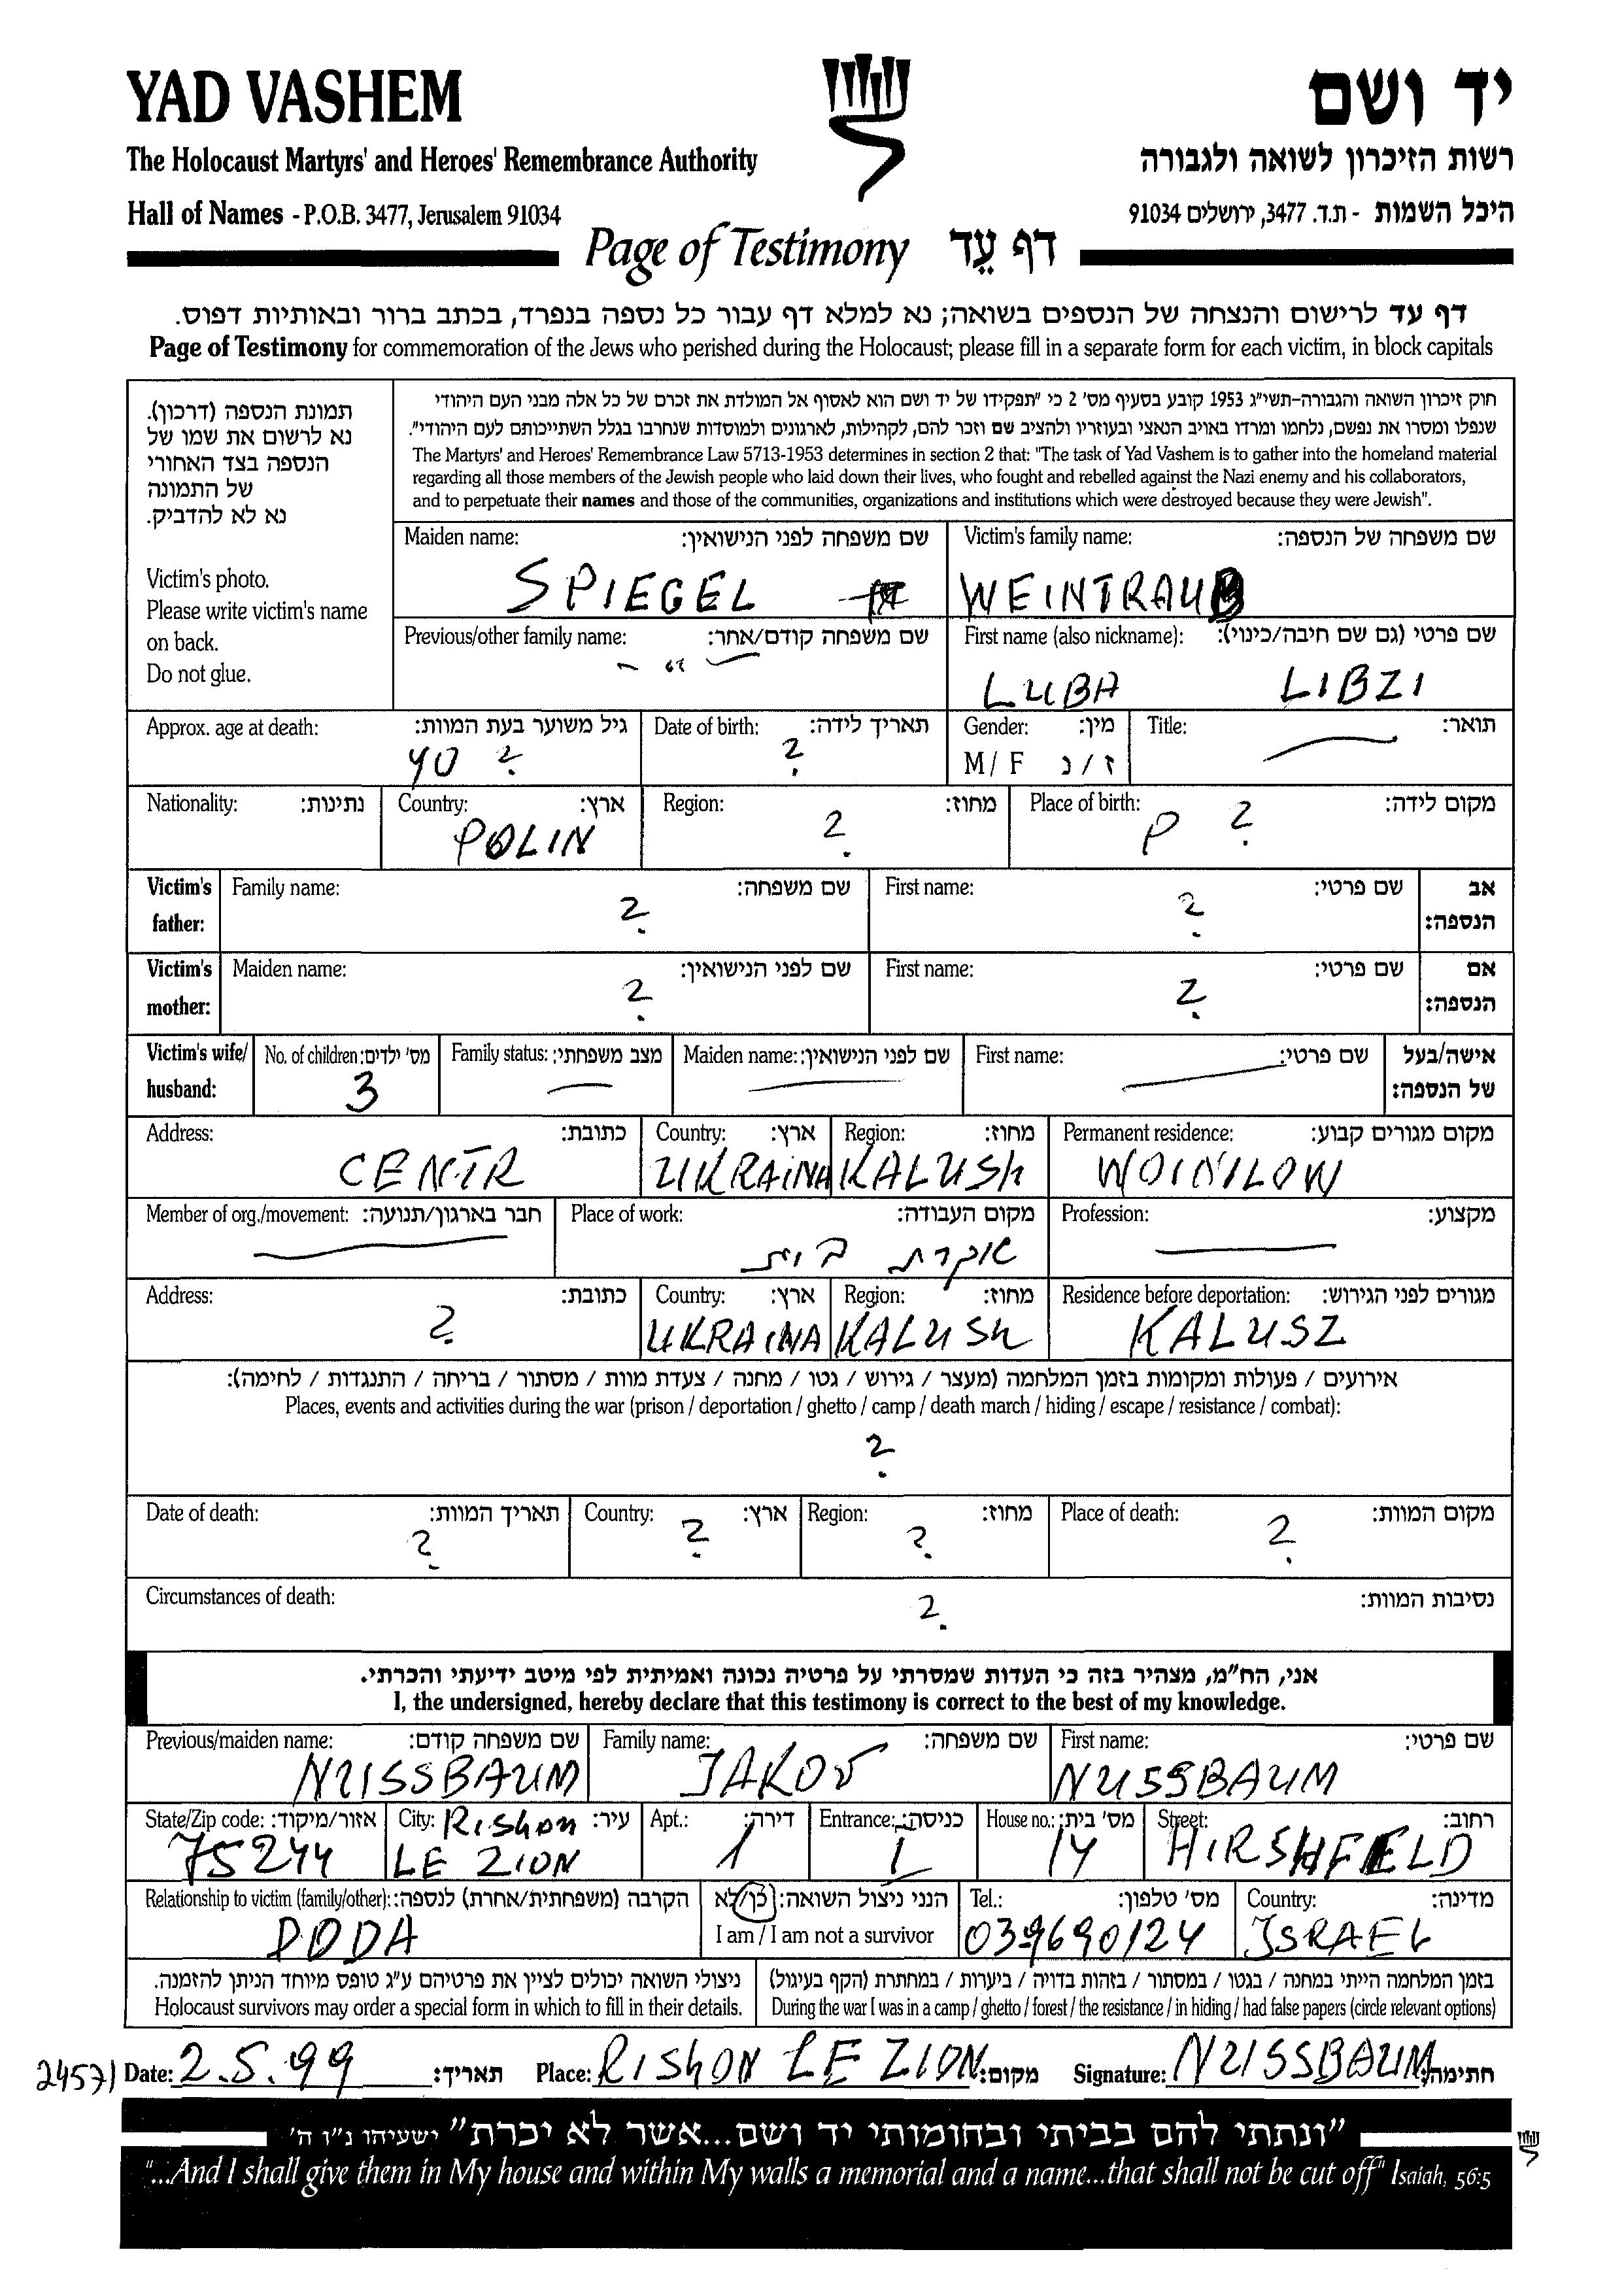 YAD VASHEM
יד ושם
The Holocaust Martyrs' and Heroes' Remembrance Authority
רשות הזיכרון לשואה ולגבורה
Hall of Names - P.O.B. 3477, Jerusalem 91034
היכל השמות - ת.ד. 3477, ירושלים 91034
Page of Testimony דף עֵד
דף עד לרישום והנצחה של הנספים בשואה; נא למלא דף עבור כל נספה בנפרד, בכתב ברור ובאותיות דפוס.
Page of Testimony for commemoration of the Jews who perished during the Holocaust; please fill in a separate form for each victim, in block capitals
תמונת הנספה (דרכון).
נא לרשום את שמו של
הנספה בצד האחורי
של התמונה
נא לא להדביק.
Victim's photo.
Please write victim's name
on back.
Do not glue.
חוק זיכרון השואה והגבורה-תשי"ג 1953 קובע בסעיף מס' 2 כי "תפקידו של יד ושם הוא לאסוף אל המולדת את זכרם של כל אלה מבני העם היהודי
שנפלו ומסרו את נפשם, נלחמו ומרדו באויב הנאצי ובעוזריו ולהציב שם וזכר להם, לקהילות, לארגונים ולמוסדות שנחרבו בגלל השתייכותם לעם היהודי".
The Martyrs' and Heroes' Remembrance Law 5713-1953 determines in section 2 that: "The task of Yad Vashem is to gather into the homeland material
regarding all those members of the Jewish people who laid down their lives, who fought and rebelled against the Nazi enemy and his collaborators,
and to perpetuate their names and those of the communities, organizations and institutions which were destroyed because they were Jewish".
Maiden name: שם משפחה לפני הנישואין: Victim's family name: שם משפחה של הנספה:
SPIEGEL WEINTRAUB
Previous/other family name: שם משפחה קודם/אחר: First name (also nickname): שם פרטי (גם שם חיבה/כינוי):
LUBA LIBZI
Approx. age at death: גיל משוער בעת המוות: Date of birth: תאריך לידה: Gender: מין: Title: תואר:
40 ? ? M / F ז / נ
Nationality: נתינות: Country: ארץ: Region: מחוז: Place of birth: מקום לידה:
POLIN ? P ?
Victim's father: Family name: שם משפחה: First name: שם פרטי: אב הנספה:
? ?
Victim's mother: Maiden name: שם לפני הנישואין: First name: שם פרטי: אם הנספה:
? ?
Victim's wife/ husband: No. of children: מס' ילדים: Family status: מצב משפחתי: Maiden name: שם לפני הנישואין: First name: שם פרטי: אישה/בעל של הנספה:
3
Address: כתובת: Country: ארץ: Region: מחוז: Permanent residence: מקום מגורים קבוע:
CENTR UKRAINA KALUSh WOINILOW
Member of org./movement: חבר בארגון/תנועה: Place of work: מקום העבודה: Profession: מקצוע:
עקרת בית
Address: כתובת: Country: ארץ: Region: מחוז: Residence before deportation: מגורים לפני הגירוש:
? UKRAINA KALUSh KALUSZ
אירועים / פעולות ומקומות בזמן המלחמה (מעצר / גירוש / גטו / מחנה / צעדת מוות / מסתור / בריחה / התנגדות / לחימה):
Places, events and activities during the war (prison / deportation / ghetto / camp / death march / hiding / escape / resistance / combat):
?
Date of death: תאריך המוות: Country: ארץ: Region: מחוז: Place of death: מקום המוות:
? ? ? ?
Circumstances of death: נסיבות המוות:
?
אני, הח"מ, מצהיר בזה כי העדות שמסרתי על פרטיה נכונה ואמיתית לפי מיטב ידיעתי והכרתי.
I, the undersigned, hereby declare that this testimony is correct to the best of my knowledge.
Previous/maiden name: שם משפחה קודם: Family name: שם משפחה: First name: שם פרטי:
NUSSBAUM JAKOV NUSSBAUM
State/Zip code: אזור/מיקוד: City: עיר: Apt.: דירה: Entrance: כניסה: House no.: מס' בית: Street: רחוב:
75244 Rishon LE ZION 1 1 14 HIRSHFELD
Relationship to victim (family/other): הקרבה (משפחתית/אחרת) לנספה: הנני ניצול השואה: כן/לא Tel.: מס' טלפון: Country: מדינה:
DODA I am / I am not a survivor 039690124 ISRAEL
ניצולי השואה יכולים לציין את פרטיהם ע"ג טופס מיוחד הניתן להזמנה.
Holocaust survivors may order a special form in which to fill in their details.
בזמן המלחמה הייתי במחנה / בגטו / במסתור / בזהות בדויה / ביערות / במחתרת (הקף בעיגול)
During the war I was in a camp / ghetto / forest / the resistance / in hiding / had false papers (circle relevant options)
24571 Date: 2.5.99 תאריך: Place: RIShON LE ZION מקום: Signature: NUSSBAUM חתימה:
"ונתתי להם בביתי ובחומותי יד ושם...אשר לא יכרת" ישעיהו נ"ו ה'
"...And I shall give them in My house and within My walls a memorial and a name...that shall not be cut off" Isaiah, 56:5